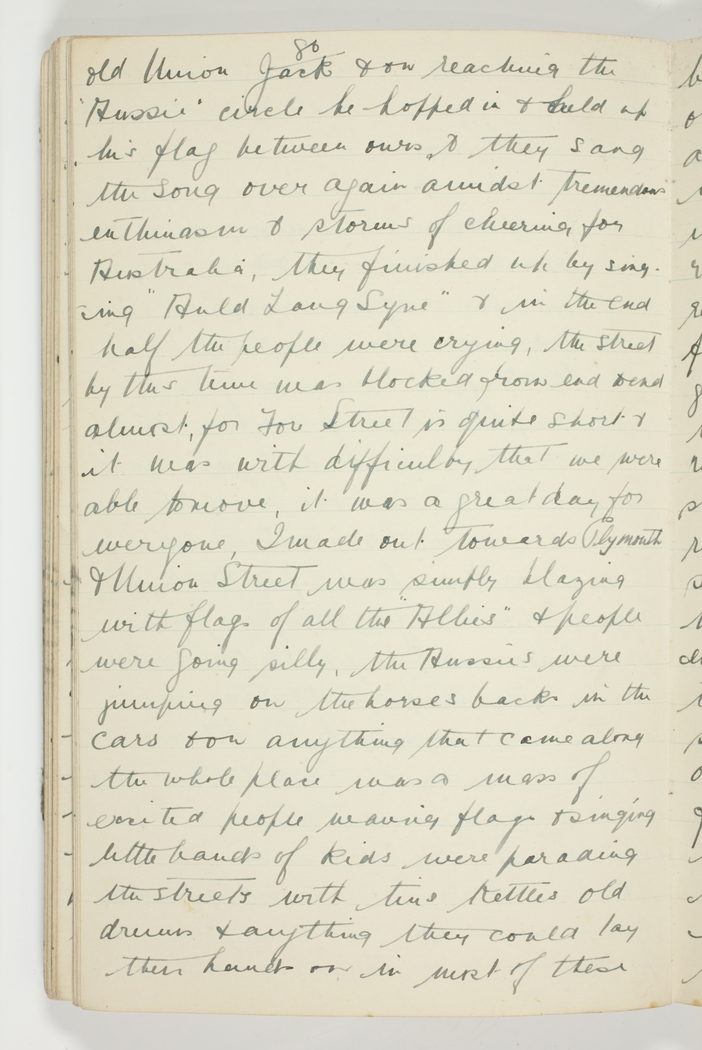 80
old Union Jack & on reaching the
"Aussie" circle he hopped in & held up
his flag between ours, & they sang
the song over again amidst tremendous
enthusiasm & storms of cheering for
Australia, they finished up by sing-
ing "Auld Lang Syne" & in the end
half the people were crying, the street
by this time was blocked from end to end
almost, for Fore Street is quite short &
it was with difficulty that we were
able to move, it was a great day for
everyone, I made out towards Plymouth
& Union Street was simply blazing
with flags of all the "Allies" & people
were going silly, the Aussies were
jumping on the horses backs in the
cars & on anything that came along
the whole place was a mass of
excited people waving flags & singing
little bands of kids were parading
the streets with tins kettles old
drums & anything they could lay
their hands on in most of these